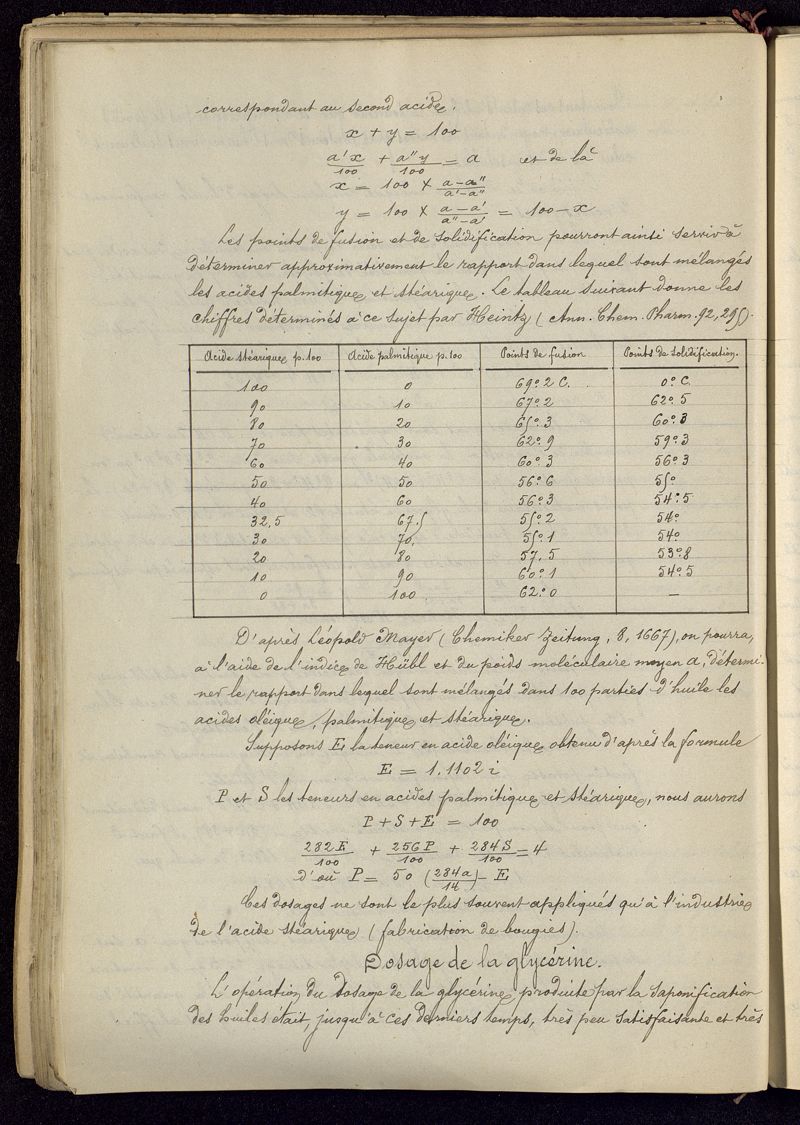 correspondant au second acide.
x + y = 100
a'x/100 + a''y/100 = a et de là
x = 100 × a-a''/a'-a''
y = 100 × a-a'/a''-a' = 100-x
Les points de fusion et de solidification pourront ainsi servir à
déterminer approximativement le rapport dans lequel sont mélangés
les acides palmitique et stéarique. Le tableau suivant donne les
chiffres déterminés à ce sujet par Heintz (Ann. Chem. Pharm. 92, 295).
Acide stéarique p. 100 Acide palmitique p. 100 Points de fusion Points de solidification.
100 0 69°2 C. 0° C.
90 10 67°2 62°5
80 20 65°3 60°3
70 30 62°9 59°3
60 40 60°3 56°3
50 50 56°6 55°
40 60 56°3 54°5
32,5 67.5 55°2 54°
30 70. 55°1 54°
20 80 57.5 53°8
10 90 60°1 54°5
0 100. 62°0 —
D'après Léopold Mayer (Chemiker Zeitung, 8, 1667), on pourra,
à l'aide de l'indice de Hübl et du poids moléculaire moyen a, détermi-
ner le rapport dans lequel sont mélangés dans 100 parties d'huile les
acides oléique, palmitique et stéarique.
Supposons E la teneur en acide oléique obtenu d'après la formule
E = 1,1102 i
P et S les teneurs en acides palmitique et stéarique, nous aurons
P + S + E = 100
282E/100 + 256P/100 + 284S/100 = 4
d'où P = 50 (284a/14) - E
Ces dosages ne sont le plus souvent appliqués qu'à l'industrie
de l'acide stéarique (fabrication de bougies).
Dosage de la glycérine.
L'opération du dosage de la glycérine produite par la saponification
des huiles était, jusqu'à ces derniers temps, très peu satisfaisante et très